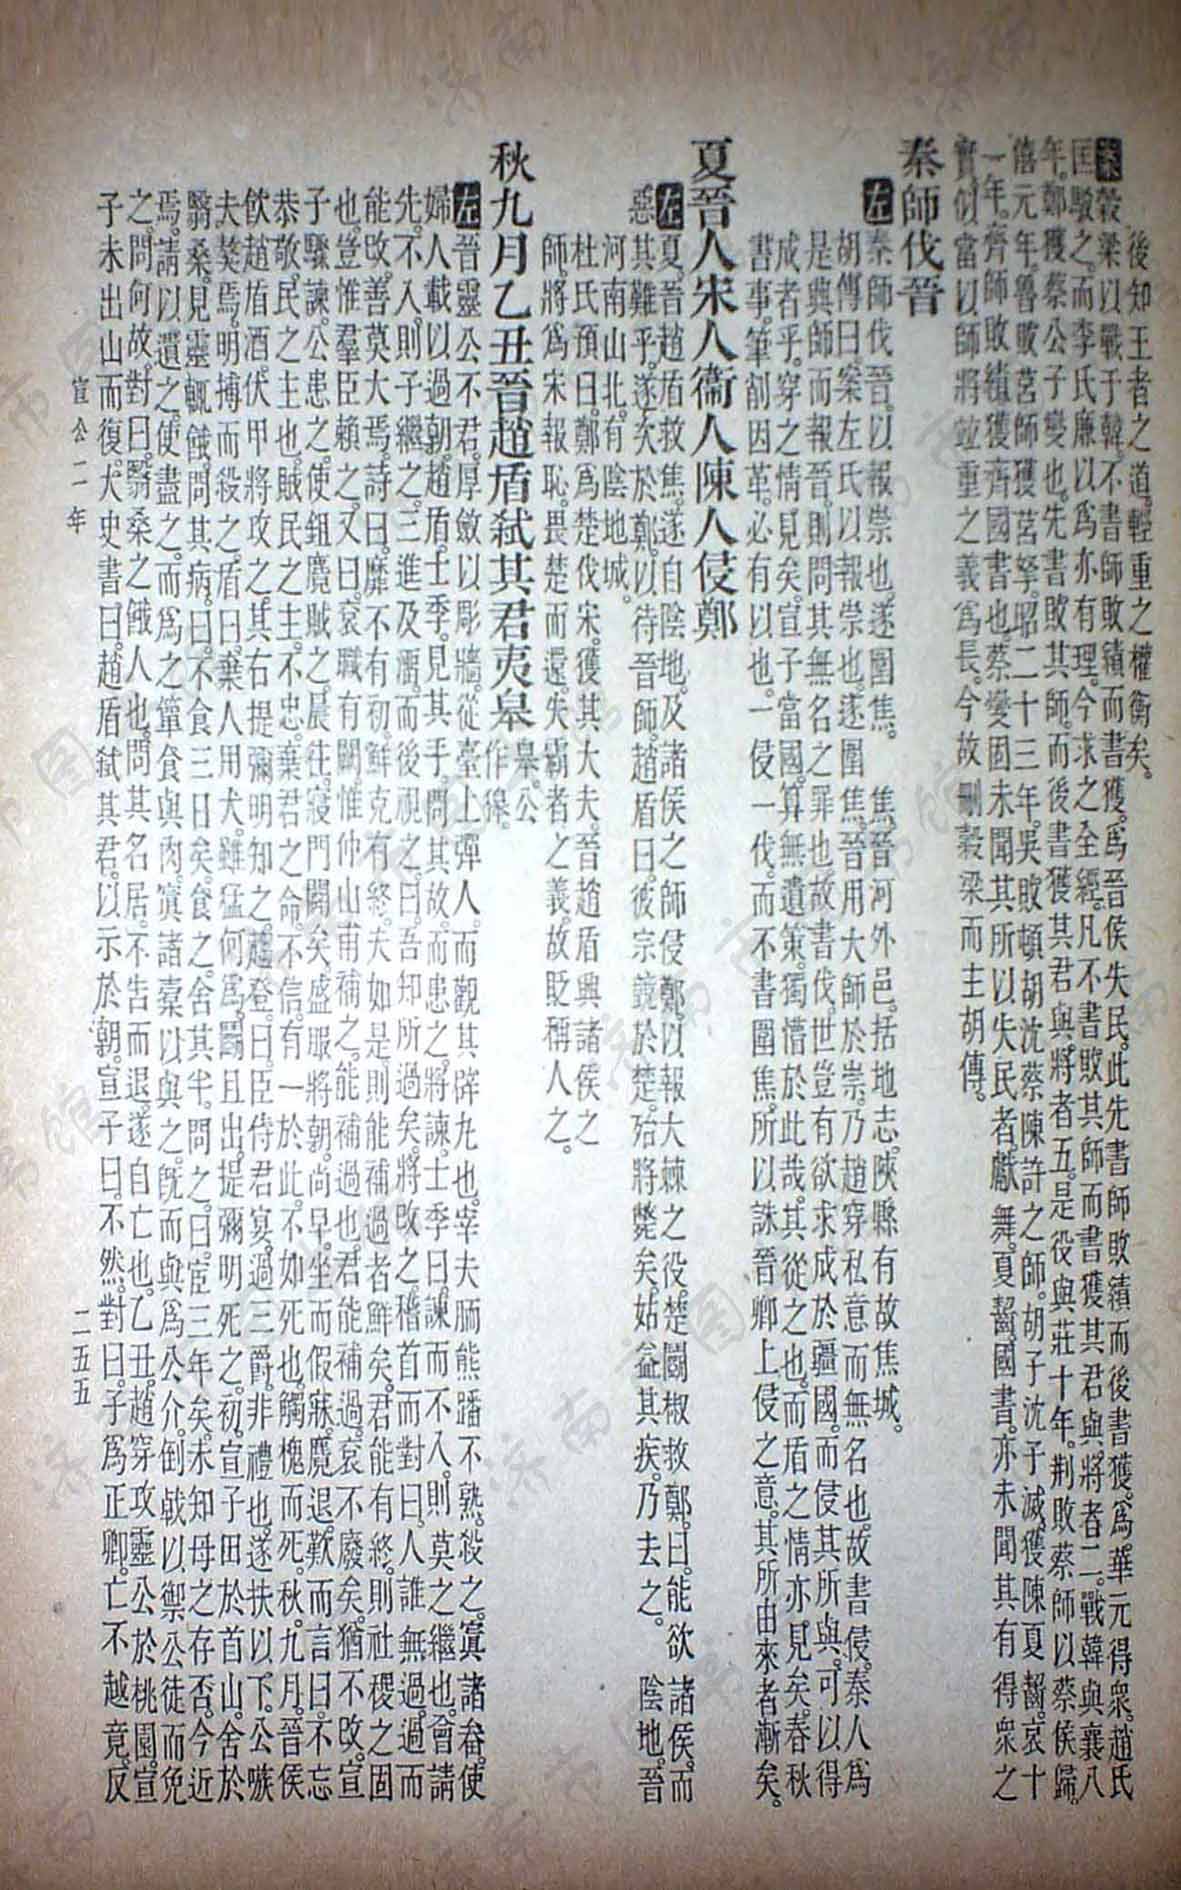 後知王者之道。輕重之權衡矣。
案穀梁以戰于韓。不書師敗績而書獲。爲晉侯失民。此先書師敗績而後書獲。爲華元得衆。趙氏
匡駁之。而李氏廉以爲亦有理。今求之全經。凡不書敗其師而書獲其君與將者二。戰韓與襄八
年鄭獲蔡公子燮也。先書敗其師。而後書獲其君與將者五。是役與莊十年。荆敗蔡師以蔡侯歸。
僖元年。魯敗莒師獲莒挐。昭二十三年。吳敗頓胡沈蔡陳許之師。胡子沈子滅。獲陳夏齧。哀十
一年。齊師敗績。獲齊國書也。蔡燮固未聞其所以失民者。獻舞。夏齧。國書。亦未聞其有得衆之
實。似當以師將竝重之義爲長。今故刪穀梁而主胡傳。
秦師伐晉
左秦師伐晉。以報崇也。遂圍焦。 焦。晉河外邑。括地志。陝縣有故焦城。
胡傳曰。案左氏以報崇也。遂圍焦。晉用大師於崇。乃趙穿私意而無名也。故書侵。秦人爲
是興師而報晉。則問其無名之罪也。故書伐。世豈有欲求成於疆國。而侵其所與。可以得
成者乎。穿之情見矣。宣子當國。算無遺策。獨懵於此哉。其從之也。而盾之情亦見矣。春秋
書事。筆削因革。必有以也。一侵一伐。而不書圍焦。所以誅晉卿上侵之意。其所由來者漸矣。
夏晉人宋人衞人陳人侵鄭
左夏。晉趙盾救焦。遂自陰地。及諸侯之師侵鄭。以報大棘之役。楚鬭椒救鄭。曰。能欲諸侯。而
惡其難乎。遂次於鄭。以待晉師。趙盾曰。彼宗競於楚。殆將斃矣。姑益其疾。乃去之。 陰地。晉
河南山北。有陰地城。
杜氏預曰。鄭爲楚伐宋。獲其大夫。晉趙盾興諸侯之
師。將爲宋報恥。畏楚而還。失霸者之義。故貶稱人之。
秋九月乙丑晉趙盾弑其君夷皋 皋。公作獋。
左晉靈公不君。厚斂以彫牆。從臺上彈人。而觀其辟丸也。宰夫胹熊蹯不熟。殺之。寘諸畚。使
婦人載以過朝。趙盾士季。見其手。問其故。而患之。將諫。士季曰。諫而不入。則莫之繼也。會請
先。不入。則子繼之。三進及溜。而後視之。曰。吾知所過矣。將改之。稽首而對曰。人誰無過。過而
能改。善莫大焉。詩曰。靡不有初。鮮克有終。夫如是。則能補過者鮮矣。君能有終。則社稷之固
也。豈惟羣臣賴之。又曰。衮職有闕。惟仲山甫補之。能補過也。君能補過。衮不廢矣。猶不改。宣
子驟諫。公患之。使鉏麑賊之。晨往。寢門闢矣。盛服將朝。尚早。坐而假寐。麑退。歎而言曰。不忘
恭敬。民之主也。賊民之主。不忠。棄君之命。不信。有一於此。不如死也。觸槐而死。秋。九月。晉侯
飲趙盾酒。伏甲將攻之。其右提彌明知之。趨登。曰。臣侍君宴。過三爵。非禮也。遂扶以下。公嗾
夫獒焉。明搏而殺之。盾曰。棄人用犬。雖猛何爲。鬭且出。提彌明死之。初。宣子田於首山。舍於
翳桑。見靈輒餓。問其病。曰。不食三日矣。食之。舍其半。問之。曰。宦三年矣。未知母之存否。今近
焉。請以遺之。使盡之。而爲之簞食與肉。寘諸橐以與之。旣而與爲公介。倒戟以禦公徒而免
之。問何故。對曰。翳桑之餓人也。問其名居。不告而退。遂自亡也。乙丑。趙穿攻靈公於桃園。宣
子未出山而復。大史書曰。趙盾弑其君。以示於朝。宣子曰。不然。對曰。子爲正卿。亡不越竟。反
宣公二年
二五五